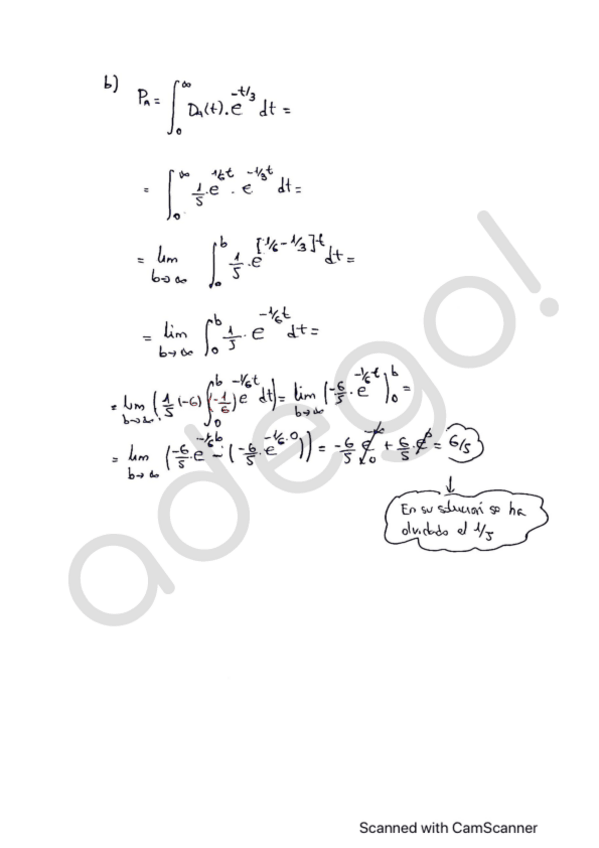 b)
P_A = ∫_0^∞ D_A(t).e^{-t/3} dt =
= ∫_0^∞ 1/5.e^{1/6t} . e^{-1/3t} dt =
= lim_{b→∞} ∫_0^b 1/5.e^{[1/6-1/3]t} dt =
= lim_{b→∞} ∫_0^b 1/5.e^{-1/6t} dt =
= lim_{b→∞} (1/5 (-6) ∫_0^b (-1/6) e^{-1/6t} dt) = lim_{b→∞} (-6/5.e^{-1/6t})_0^b =
= lim_{b→∞} (-6/5.e^{-1/6b} - (-6/5.e^{-1/6.0})) = -6/5 e^{-∞} 0 + 6/5.e^0 = 6/5
↓
En su solución se ha
olvidado el 1/5
adego!
Scanned with CamScanner